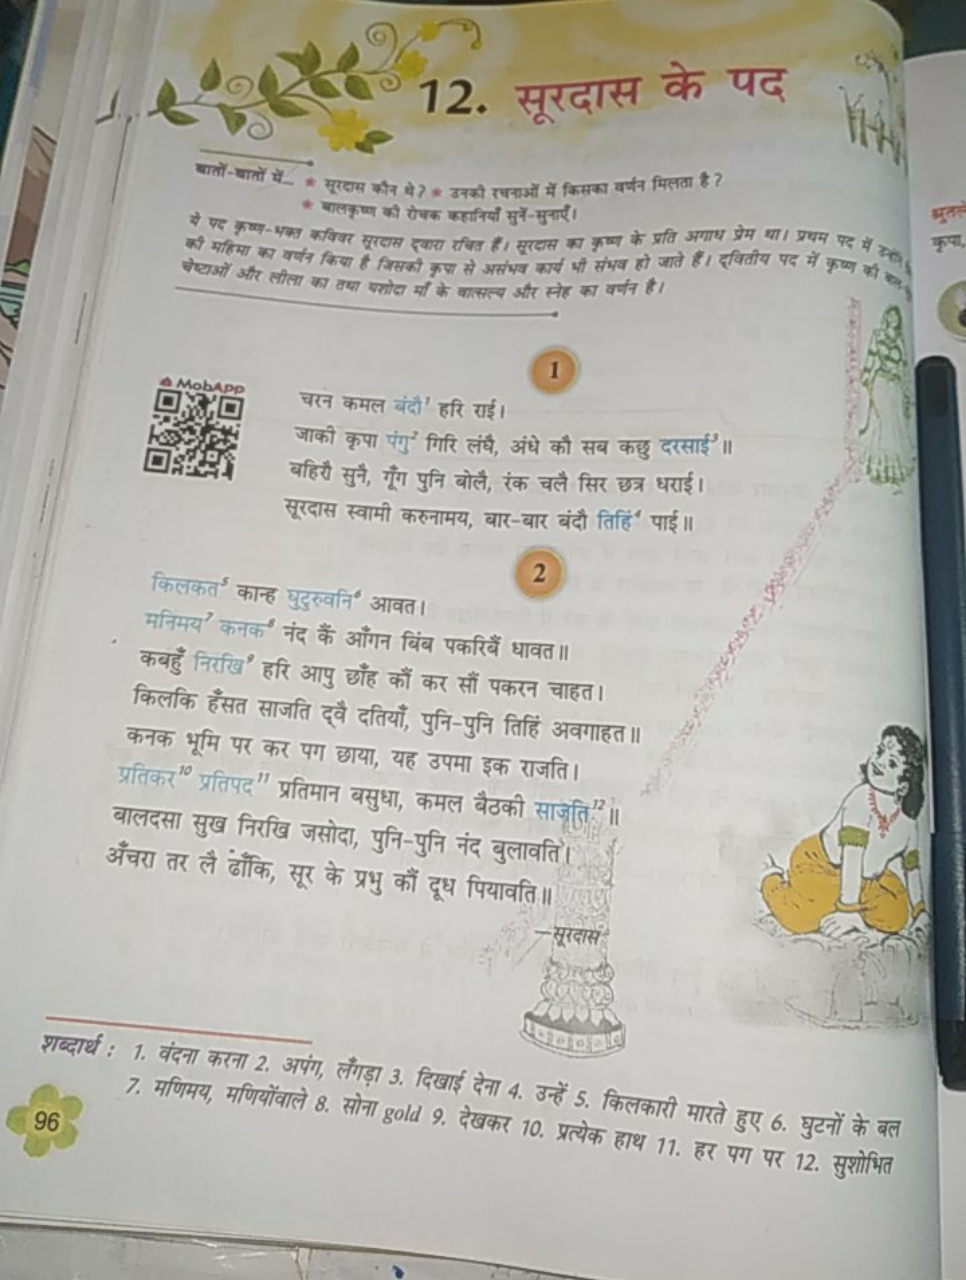 12. सूरदास के पद
बातों-बातों में... * सूरदास कौन थे? * उनकी रचनाओं में किसका वर्णन मिलता है?
* बालकृष्ण की रोचक कहानियाँ सुनें-सुनाएँ।
ये पद कृष्ण-भक्त कविवर सूरदास द्वारा रचित हैं। सूरदास का कृष्ण के प्रति अगाध प्रेम था। प्रथम पद में
की महिमा का वर्णन किया है जिसकी कृपा से असंभव कार्य भी संभव हो जाते हैं। द्वितीय पद में कृष्ण की
चेष्टाओं और लीला का तथा यशोदा माँ के वात्सल्य और स्नेह का वर्णन है।
1
MobApp
चरन कमल बंदौ¹ हरि राई।
जाकी कृपा पंगु² गिरि लंघै, अंधे कौ सब कछु दरसाई³॥
बहिरौ सुनै, गूँग पुनि बोलै, रंक चलै सिर छत्र धराई।
सूरदास स्वामी करुनामय, बार-बार बंदौ तिहिं⁴ पाई॥
2
किलकत⁵ कान्ह घुटुरुवनि⁶ आवत।
मनिमय⁷ कनक⁸ नंद कैं आँगन बिंब पकरिबैं धावत॥
कबहुँ निरखि⁹ हरि आपु छाँह कौं कर सौं पकरन चाहत।
किलकि हँसत साजति द्वै दतियाँ, पुनि-पुनि तिहिं अवगाहत॥
कनक भूमि पर कर पग छाया, यह उपमा इक राजति।
प्रतिकर¹⁰ प्रतिपद¹¹ प्रतिमान बसुधा, कमल बैठकी साजति¹²॥
बालदसा सुख निरखि जसोदा, पुनि-पुनि नंद बुलावति।
अँचरा तर लै ढाँकि, सूर के प्रभु कौं दूध पियावति॥
—सूरदास
शब्दार्थ : 1. वंदना करना 2. अपंग, लँगड़ा 3. दिखाई देना 4. उन्हें 5. किलकारी मारते हुए 6. घुटनों के बल
7. मणिमय, मणियोंवाले 8. सोना gold 9. देखकर 10. प्रत्येक हाथ 11. हर पग पर 12. सुशोभित
96
कृपा,